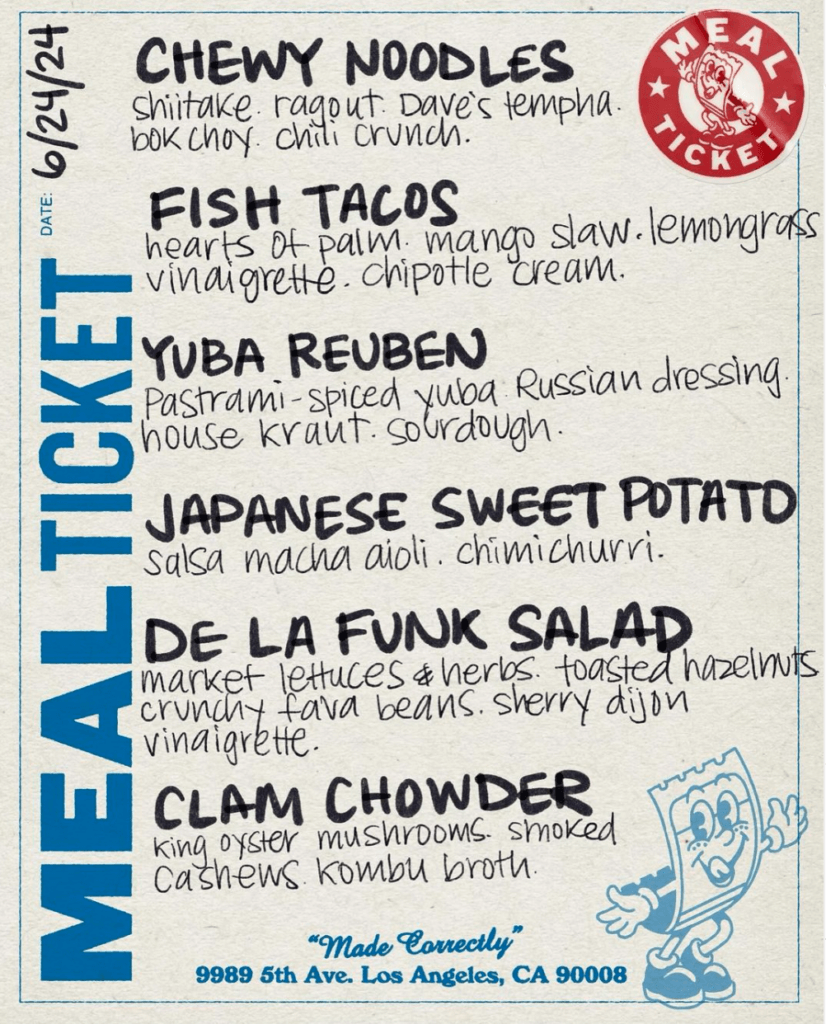 DATE: 6/24/24
MEAL TICKET
MEAL TICKET
CHEWY NOODLES
shiitake. ragout. Dave's tempha.
bok choy. chili crunch.
FISH TACOS
hearts of palm. mango slaw. lemongrass
vinaigrette. chipotle cream.
YUBA REUBEN
Pastrami-spiced yuba. Russian dressing.
house kraut. sourdough.
JAPANESE SWEET POTATO
salsa macha aioli. chimichurri.
DE LA FUNK SALAD
market lettuces & herbs. toasted hazelnuts
crunchy fava beans. sherry dijon
vinaigrette.
CLAM CHOWDER
king oyster mushrooms. smoked
cashews. kombu broth.
"Made Correctly"
9989 5th Ave. Los Angeles, CA 90008